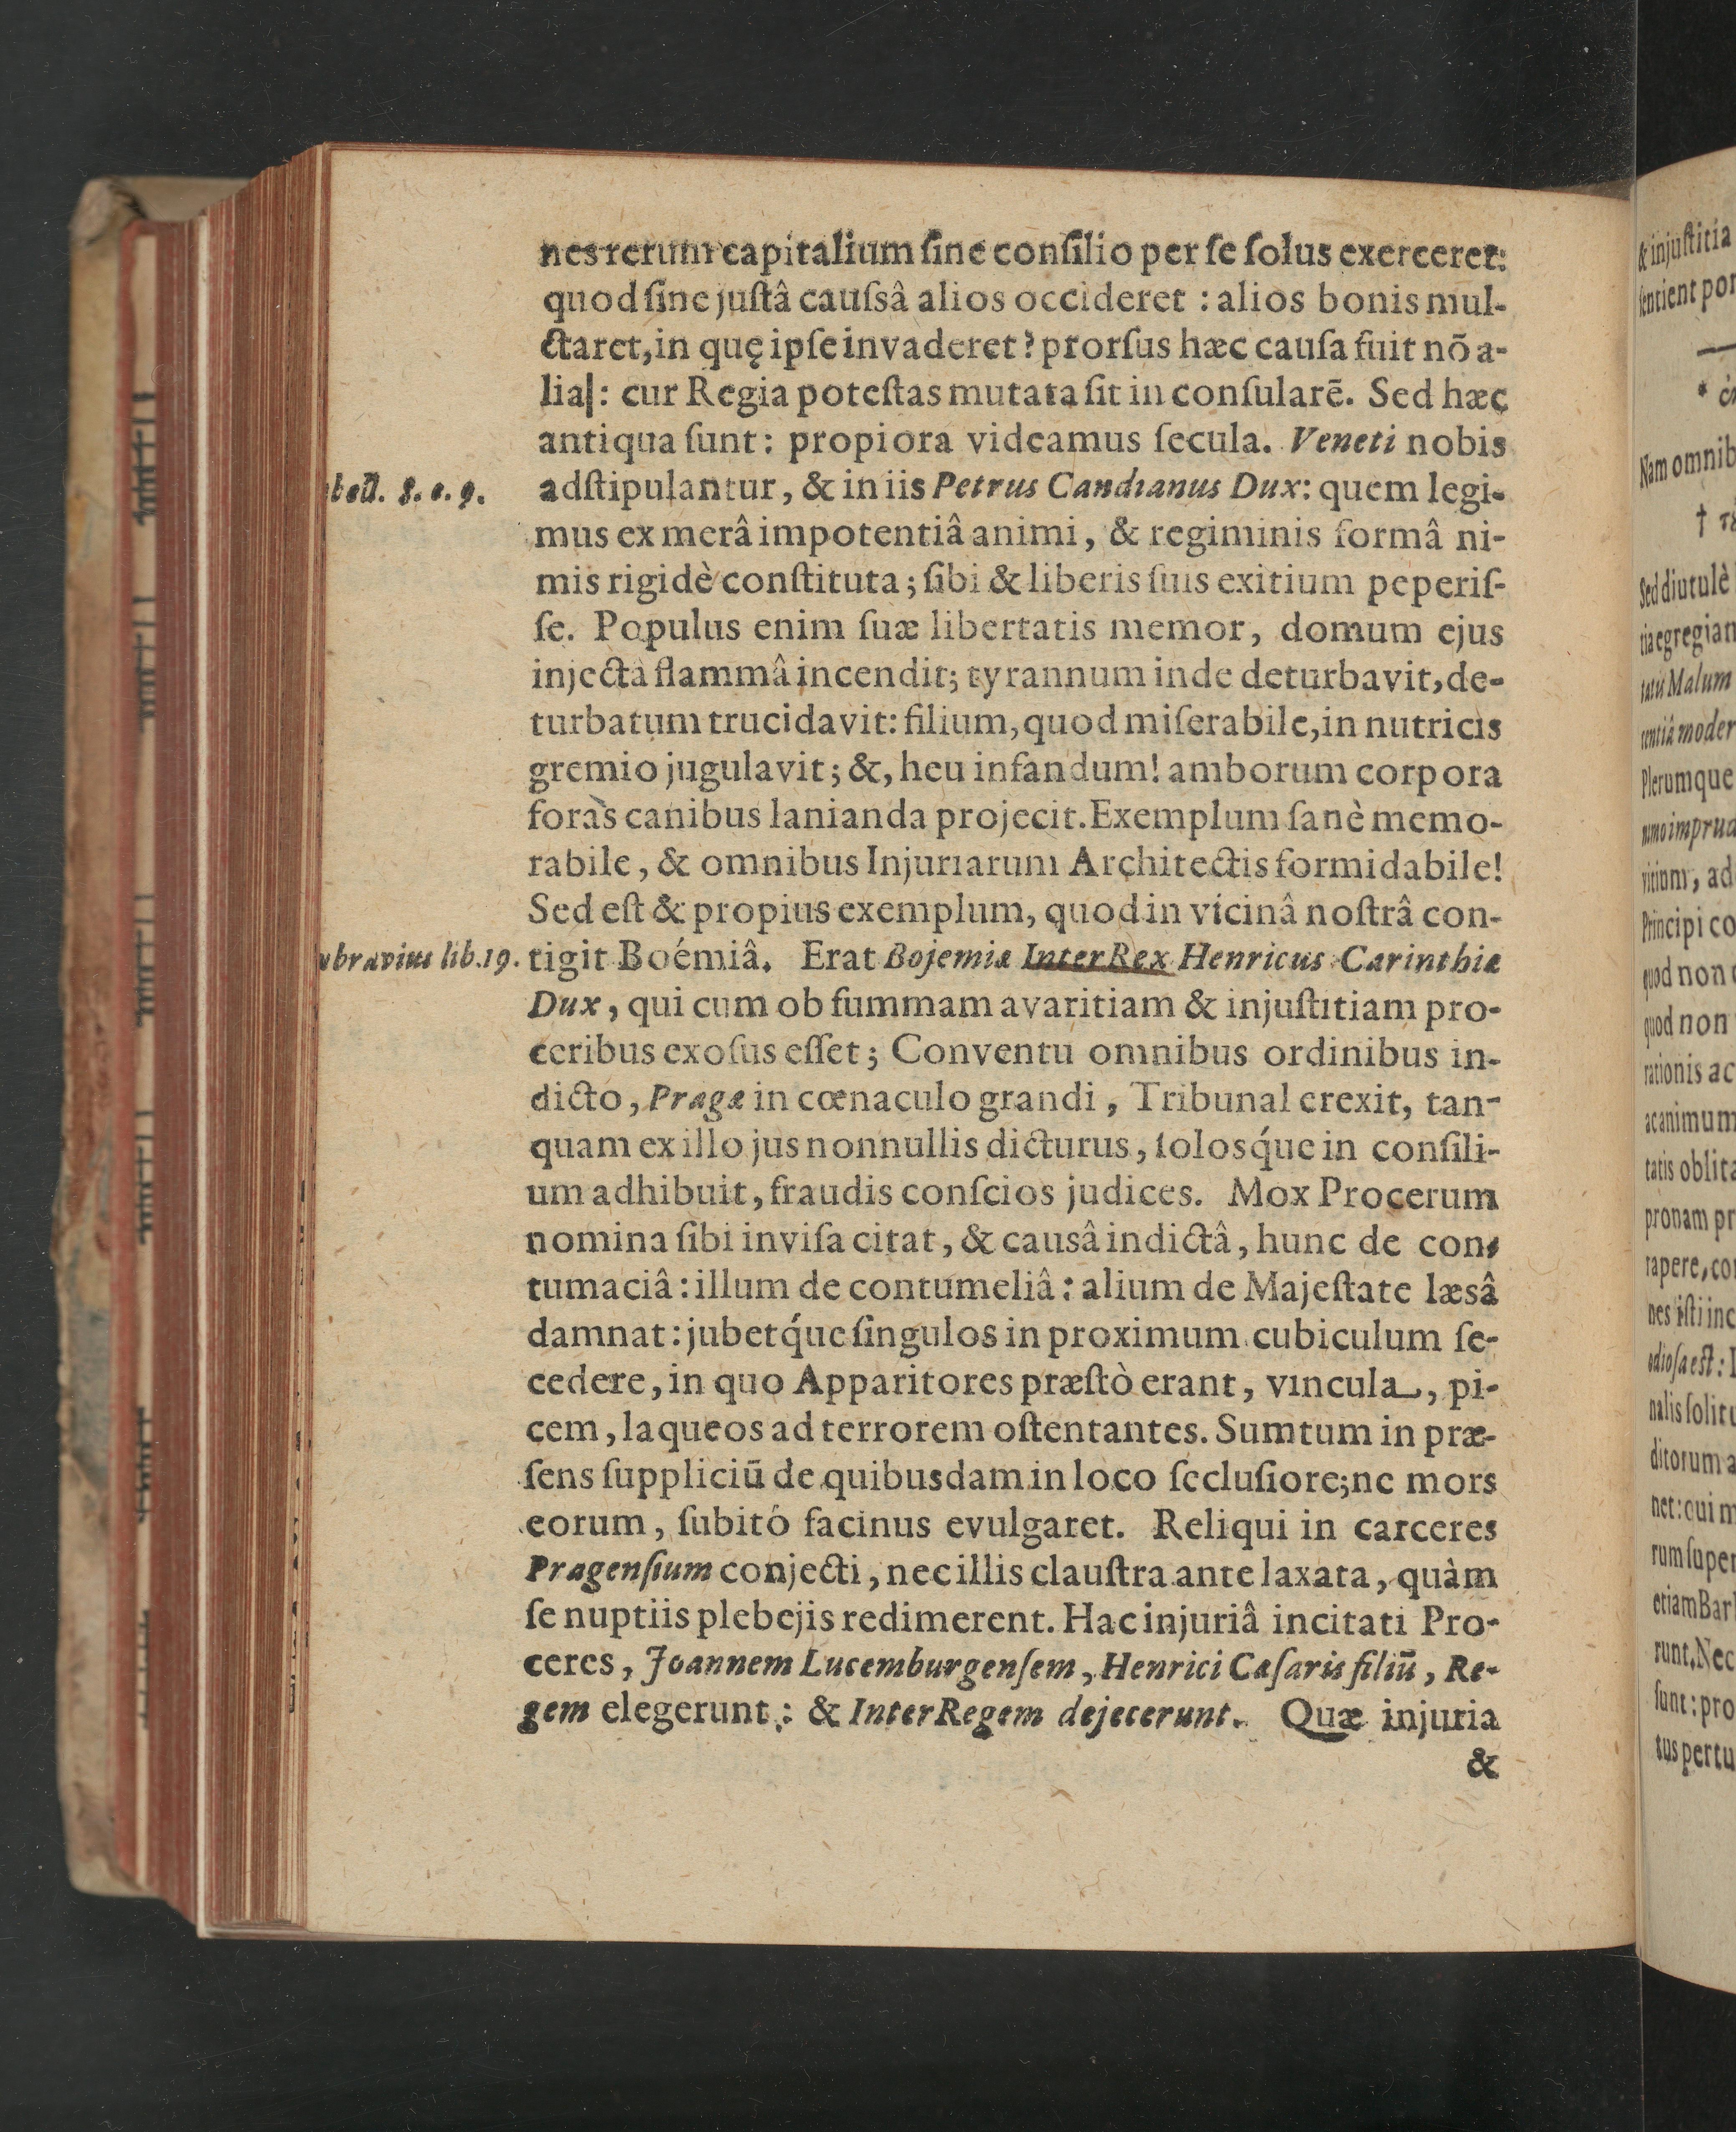 nes rerum capitalium ſine conſilio per ſe ſolus exerceret:
quod ſine juſtâ cauſsâ alios occideret : alios bonis mul-
ctaret, in quę ipſe invaderet? prorſus hæc cauſa fuit nõ a-
lia|: cur Regia poteſtas mutata ſit in conſularē. Sed hæc
antiqua ſunt: propiora videamus ſecula. Veneti nobis
adſtipulantur, & in iis Petrus Candianus Dux: quem legi-
mus ex merâ impotentiâ animi, & regiminis formâ ni-
mis rigidè conſtituta; ſibi & liberis ſuis exitium peperiſ-
ſe. Populus enim ſuæ libertatis memor, domum ejus
injectâ flammâ incendit; tyrannum inde deturbavit, de-
turbatum trucidavit: filium, quod miſerabile, in nutricis
gremio jugulavit; &, heu infandum! amborum corpora
foràs canibus lanianda projecit. Exemplum ſanè memo-
rabile, & omnibus Injuriarum Architectis formidabile!
Sed eſt & propius exemplum, quod in vicinâ noſtrâ con-
ubravius lib. 19.
tigit Boémiâ. Erat Bojemiæ InterRex Henricus Carinthiæ
Dux, qui cum ob ſummam avaritiam & injuſtitiam pro-
ceribus exoſus eſſet; Conventu omnibus ordinibus in-
dicto, Pragæ in cœnaculo grandi, Tribunal erexit, tan-
quam ex illo jus nonnullis dicturus, ſolosq́ue in conſili-
um adhibuit, fraudis conſcios judices. Mox Procerum
nomina ſibi inviſa citat, & causâ indictâ, hunc de con-
tumaciâ: illum de contumeliâ: alium de Majeſtate læsâ
damnat: jubetq́ue ſingulos in proximum cubiculum ſe-
cedere, in quo Apparitores præſtò erant, vincula, pi-
cem, laqueos ad terrorem oſtentantes. Sumtum in præ-
ſens ſuppliciũ de quibusdam in loco ſecluſiore; ne mors
eorum, ſubitó facinus evulgaret. Reliqui in carceres
Pragenſium conjecti, nec illis clauſtra ante laxata, quàm
ſe nuptiis plebejis redimerent. Hac injuriâ incitati Pro-
ceres, Joannem Lucemburgenſem, Henrici Cæſaris filiũ, Re-
gem elegerunt: & InterRegem dejecerunt. Quæ injuria
&
& injuſtitia
ſentient
Nam omnib
Sed diutulè
tia egregian
Malum
moder
Plerumque
vitium, ad
Principi co
quod non
quod non
rationis ac
ac animum
tatis oblita
pronam pr
rapere, co
nes iſti inc
odioſa eſt:
nalis ſolitu
ditorum a
net: qui m
rum ſuper
etiam Bar
runt. Nec
ſunt: pro
tus pertu